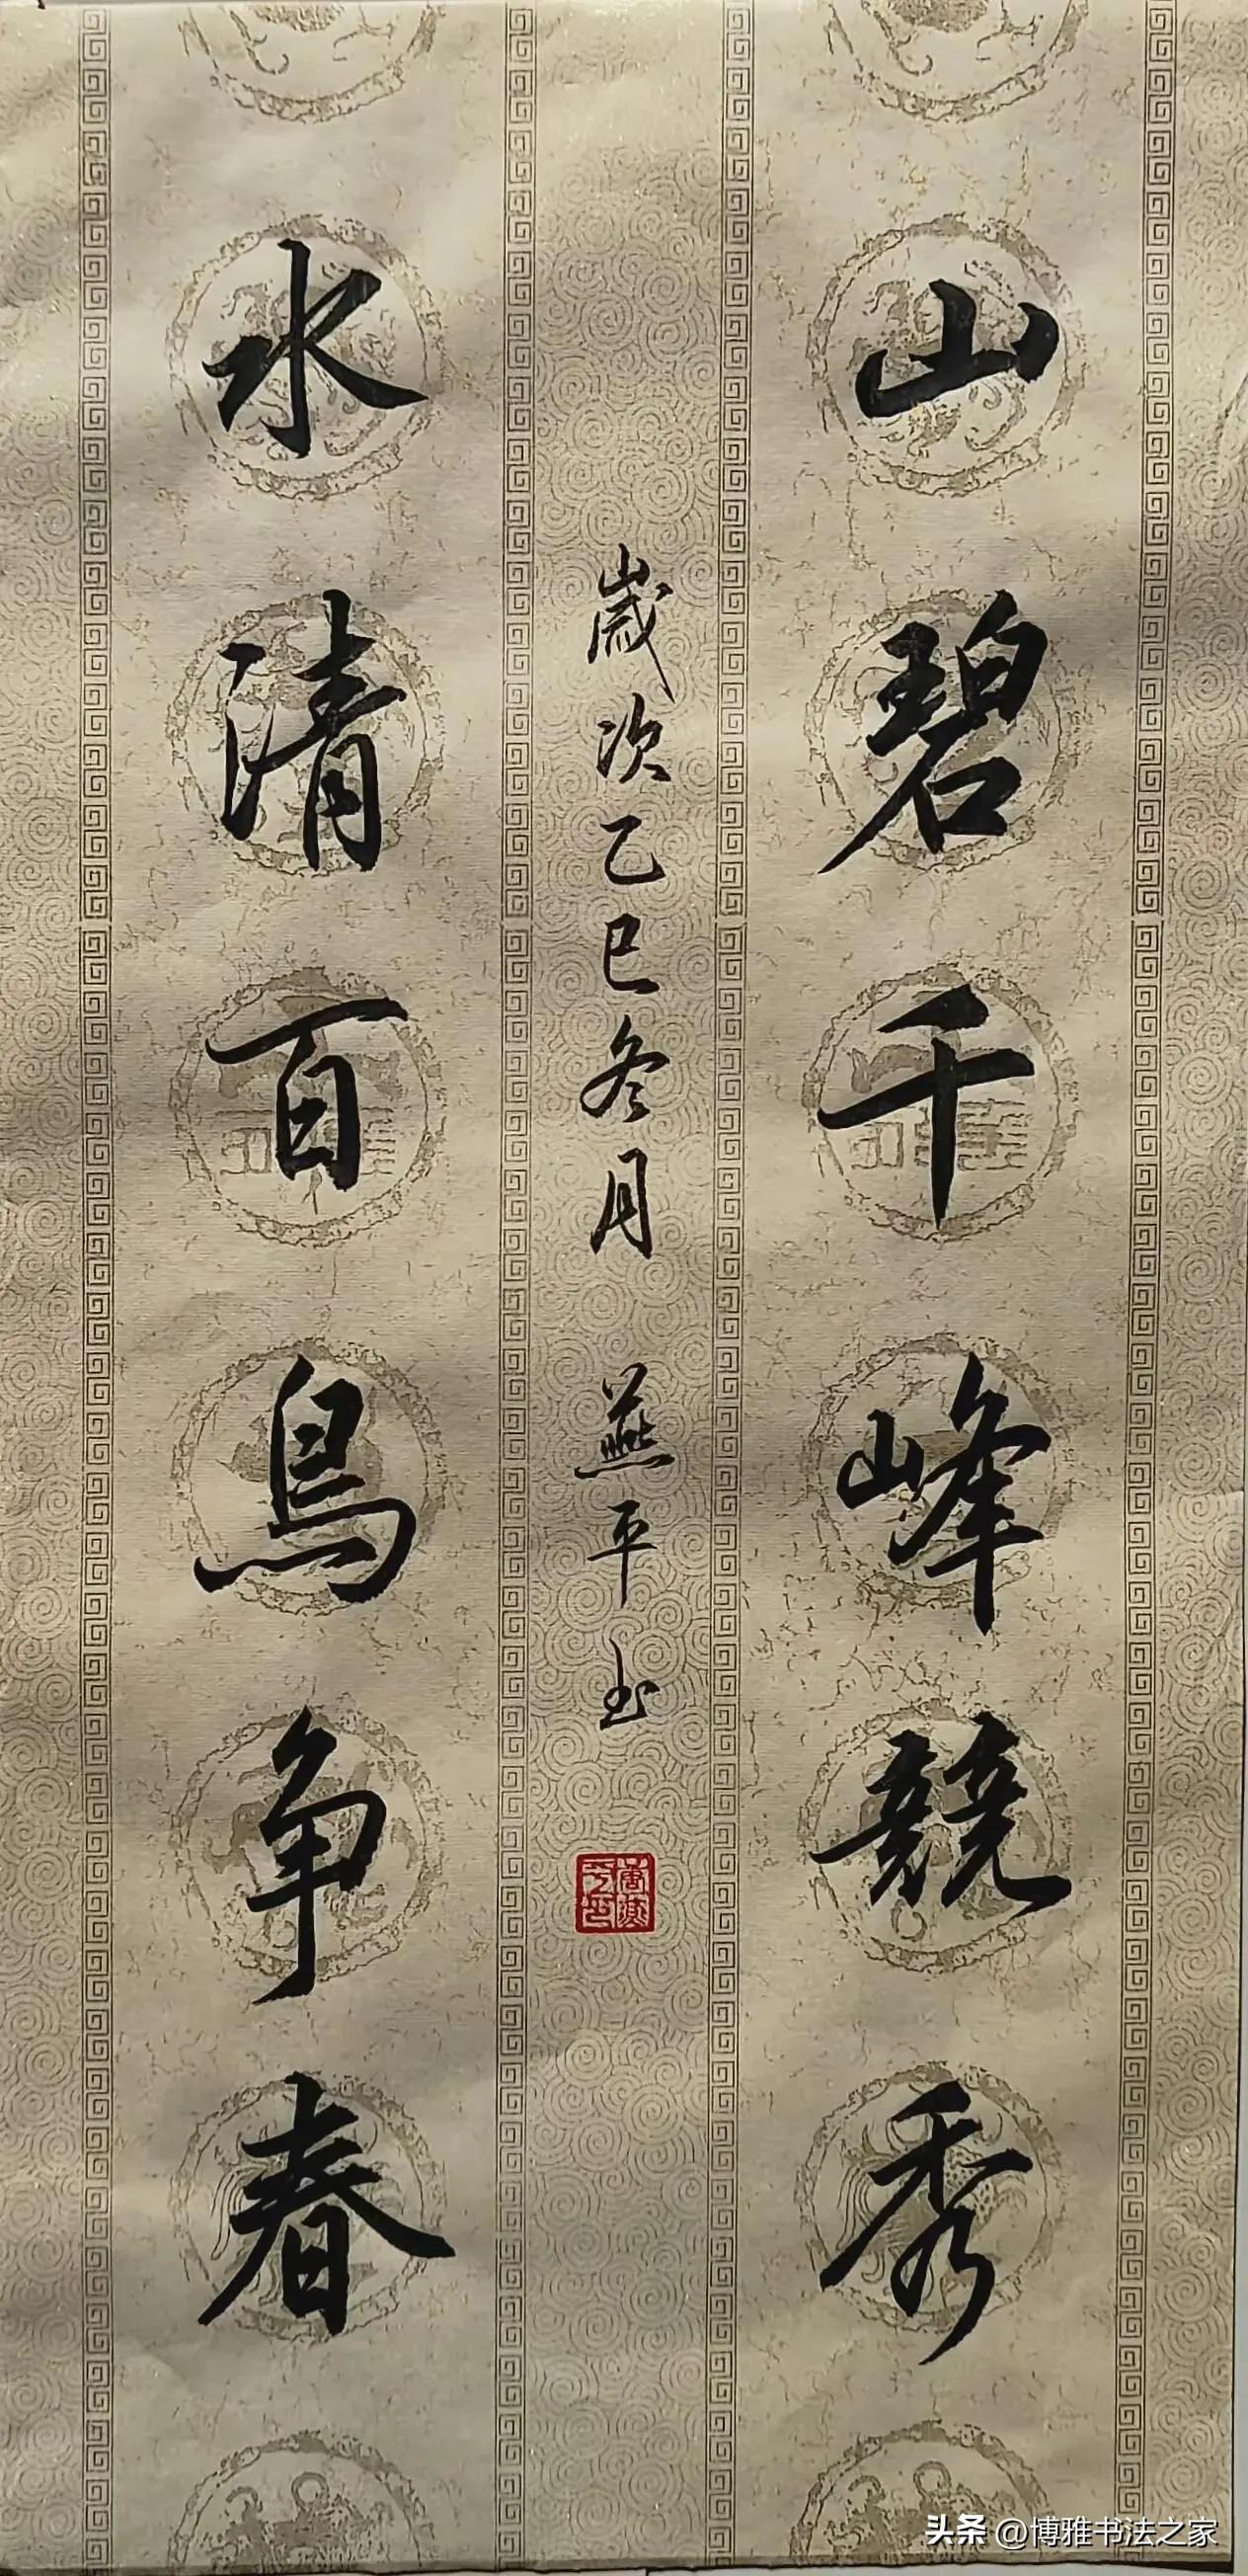 山碧千峰競秀
歲次乙巳冬月 燕平书
水清百鳥争春
头条 @博雅书法之家